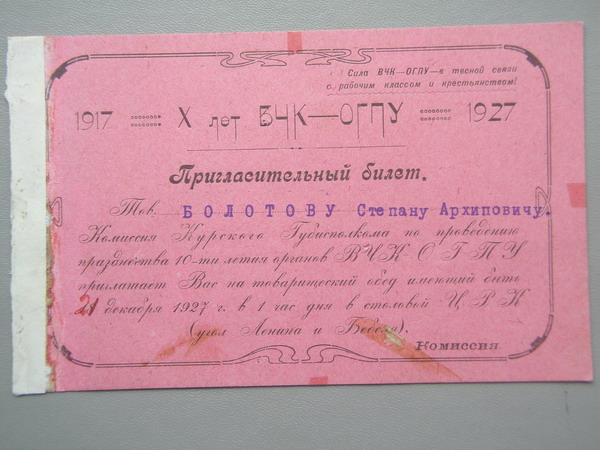 Сила ВЧК—ОГПУ—в тесной связи
с рабочим классом и крестьянством!
1917 X лет ВЧК—ОГПУ 1927
Пригласительный билет.
Тов. БОЛОТОВУ Степану Архиповичу.
Комиссия Курского Губисполкома по проведению
празднества 10-ти летия органов ВЧК-ОГПУ
приглашает Вас на товарищеский обед имеющий быть
21 декабря 1927 г. в 1 час дня в столовой Ц.Р.К
(угол Ленина и Бебеля).
Комиссия